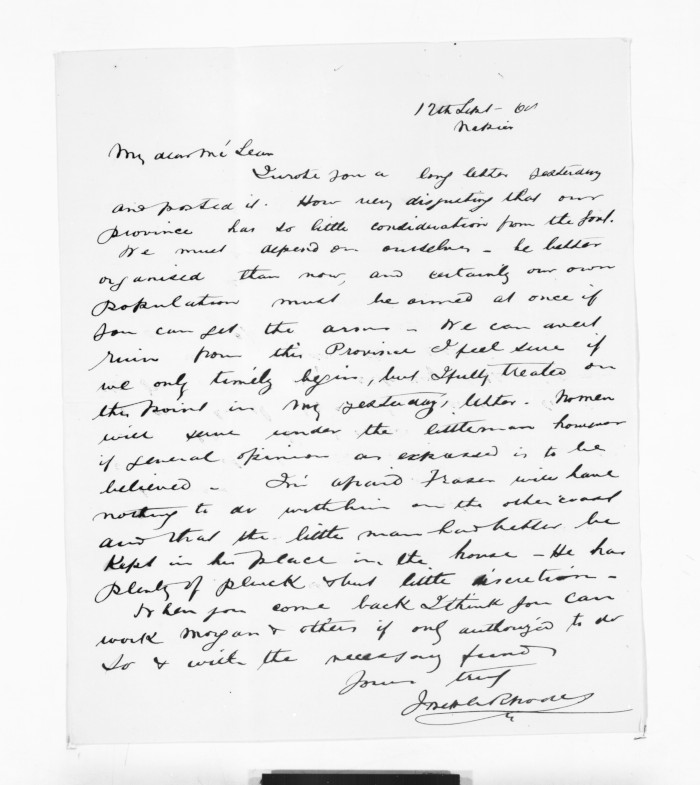 17th Sept - 68
Napier
My dear McLean
I wrote you a long letter yesterday
and posted it. How very disgusting that our
Province has so little consideration from the Govt.
We must depend on ourselves - be better
organised than now, and certainly our own
population must be armed at once if
you can get the arms - We can avert
ruin from this Province I feel sure if
we only timely begin, but I fully treated on
this point in my yesterday's letter. No men
will serve under the little man however
if general opinion as expressed is to be
believed - I'm afraid Fraser will have
nothing to do with him on the other coast
and that the little man had better be
Kept in his place in the house - He has
plenty of pluck & but little discretion -
When you come back I think you can
work Morgan & others if only authorized to do
so & with the necessary funds
Yours truly
Joseph Rhodes